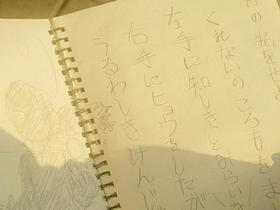 の光を
くれないのころもをま
左手に知しきとならいな
右手にヒョウをしたが
うるわしきけんじ